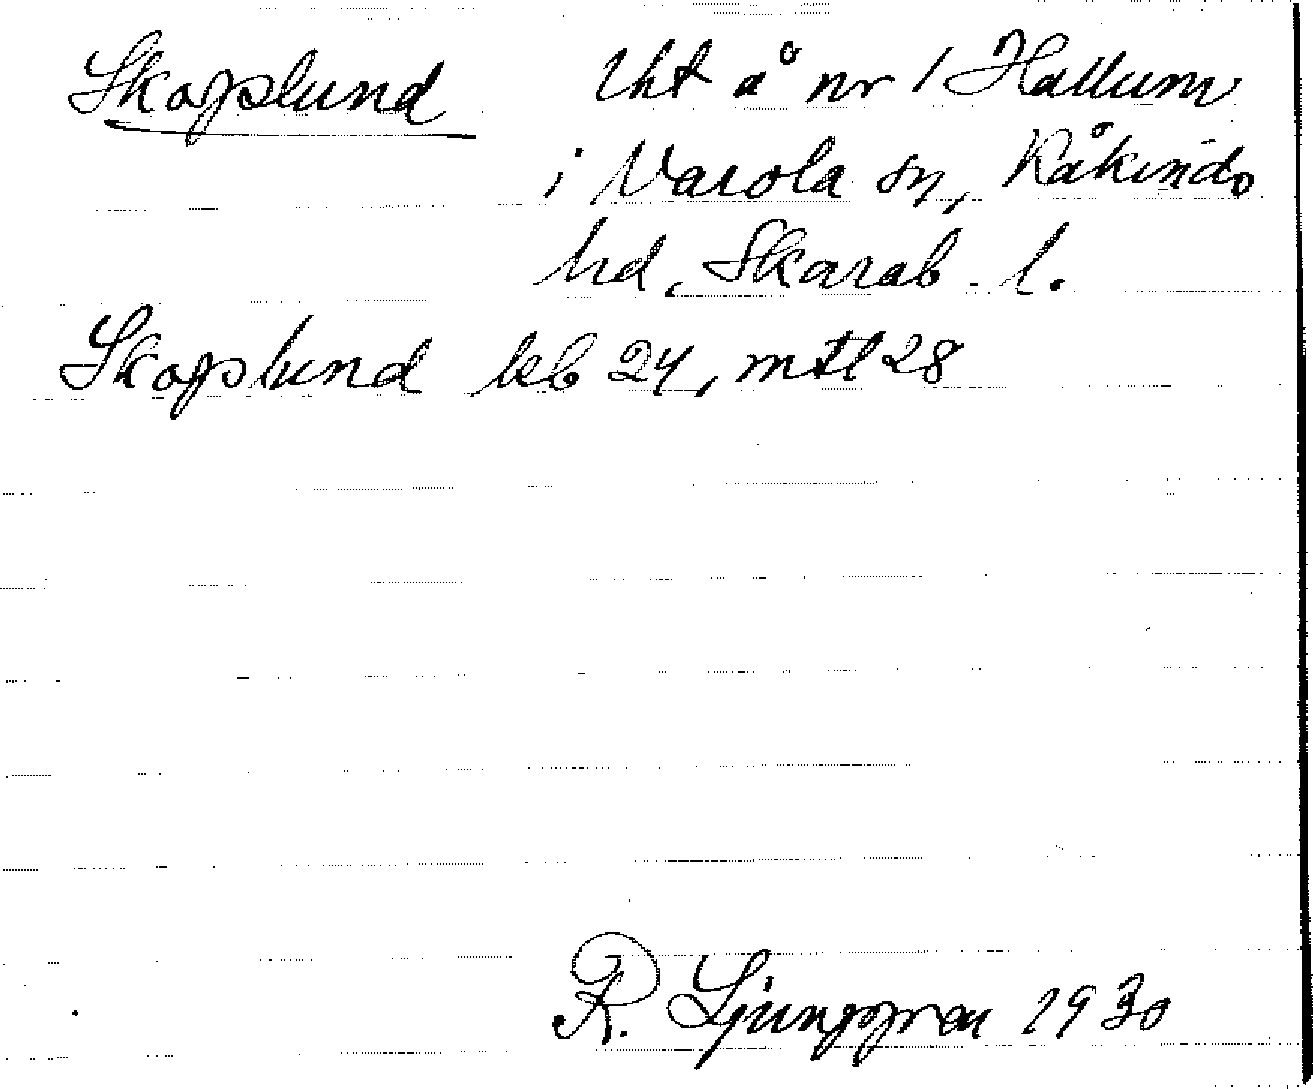 Skogslund lht å nr 1 Hallum
i Varola sn, Kåkinds
hd, Skarab. l.
Skogslund kb 24, mtl 28
R. Ljunggren 1930